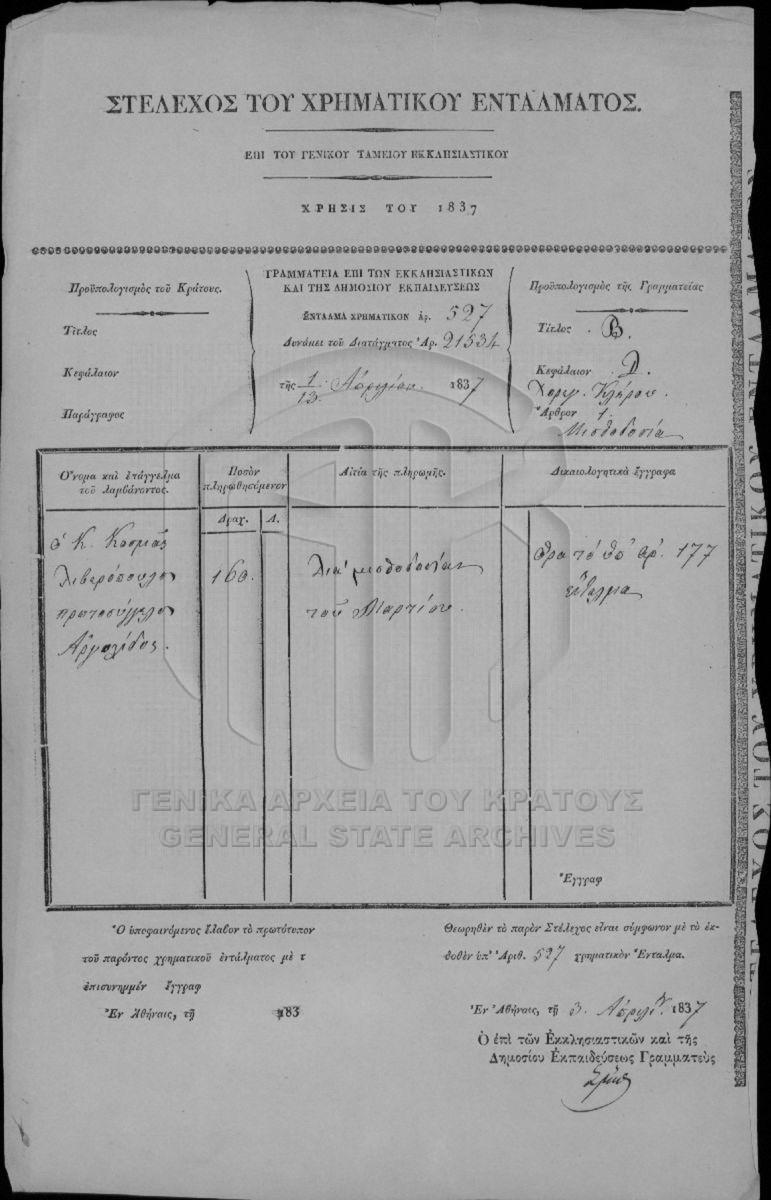 ΣΤΕΛΕΧΟΣ ΤΟΥ ΧΡΗΜΑΤΙΚΟΥ ΕΝΤΑΛΜΑΤΟΣ.
ΕΠΙ ΤΟΥ ΓΕΝΙΚΟΥ ΤΑΜΕΙΟΥ ΕΚΚΛΗΣΙΑΣΤΙΚΟΥ
ΧΡΗΣΙΣ ΤΟΥ 1837
Προϋπολογισμὸς τοῦ Κράτους.
Τίτλος
Κεφάλαιον
Παράγραφος
ΓΡΑΜΜΑΤΕΙΑ ΕΠΙ ΤΩΝ ΕΚΚΛΗΣΙΑΣΤΙΚΩΝ
ΚΑΙ ΤΗΣ ΔΗΜΟΣΙΟΥ ΕΚΠΑΙΔΕΥΣΕΩΣ
ΕΝΤΑΛΜΑ ΧΡΗΜΑΤΙΚΟΝ ἀρ. 527
Δυνάμει τοῦ Διατάγματος Ἀρ. 21534
τῆς 1/13 Ἀπριλίου 1837
Προϋπολογισμὸς τῆς Γραμματείας
Τίτλος . Β.
Κεφάλαιον . Δ.
Χορηγ. Κλήρου.
Ἄρθρον 1.
Μισθοδοσία
Ὄνομα καὶ ἐπάγγελμα
τοῦ λαμβάνοντος.
Ποσὸν
πληρωθησόμενον
Δραχ. Λ.
Αἰτία τῆς πληρωμῆς.
Δικαιολογητικὰ ἔγγραφα
ὁ Κ. Κοσμᾶς
Λιβερόπουλος
πρωτοσύγγελος
Ἀργολίδος.
160.
Διὰ μισθοδοσίαν
τοῦ Μαρτίου.
ὅρα τὸ ὑπ' ἀρ. 177
ἔνταλμα
Ἔγγραφ
Ὁ ὑποφαινόμενος ἔλαβον τὸ πρωτότυπον
τοῦ παρόντος χρηματικοῦ ἐντάλματος μὲ τ
ἐπισυνημμέν ἔγγραφ
Ἐν Ἀθήναις, τῇ 183
Θεωρηθὲν τὸ παρὸν Στέλεχος εἶναι σύμφωνον μὲ τὸ ἐκ-
δοθὲν ὑπ' Ἀριθ. 527 χρηματικὸν Ἔνταλμα.
Ἐν Ἀθήναις, τῇ 3. Ἀπριλίου 1837
Ὁ ἐπὶ τῶν Ἐκκλησιαστικῶν καὶ τῆς
Δημοσίου Ἐκπαιδεύσεως Γραμματεὺς
ΓΕΝΙΚΑ ΑΡΧΕΙΑ ΤΟΥ ΚΡΑΤΟΥΣ
GENERAL STATE ARCHIVES